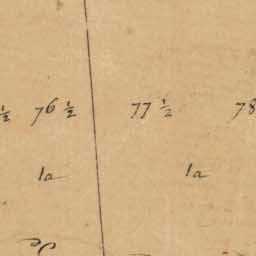 ½ 76 ½ 77 ½ 78
1a 1a